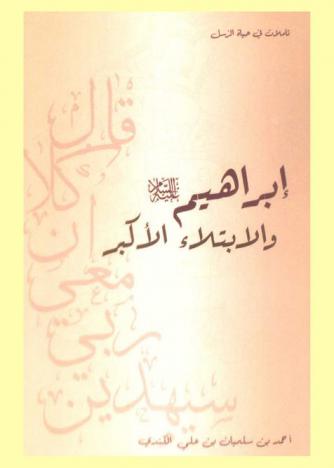 تأملات في حياة الرسل
إبراهيم عليه السلام
والابتلاء الأكبر
قال
كلا
إن
معي
ربي
سيهدين
أحمد بن سليمان بن علي الكندي